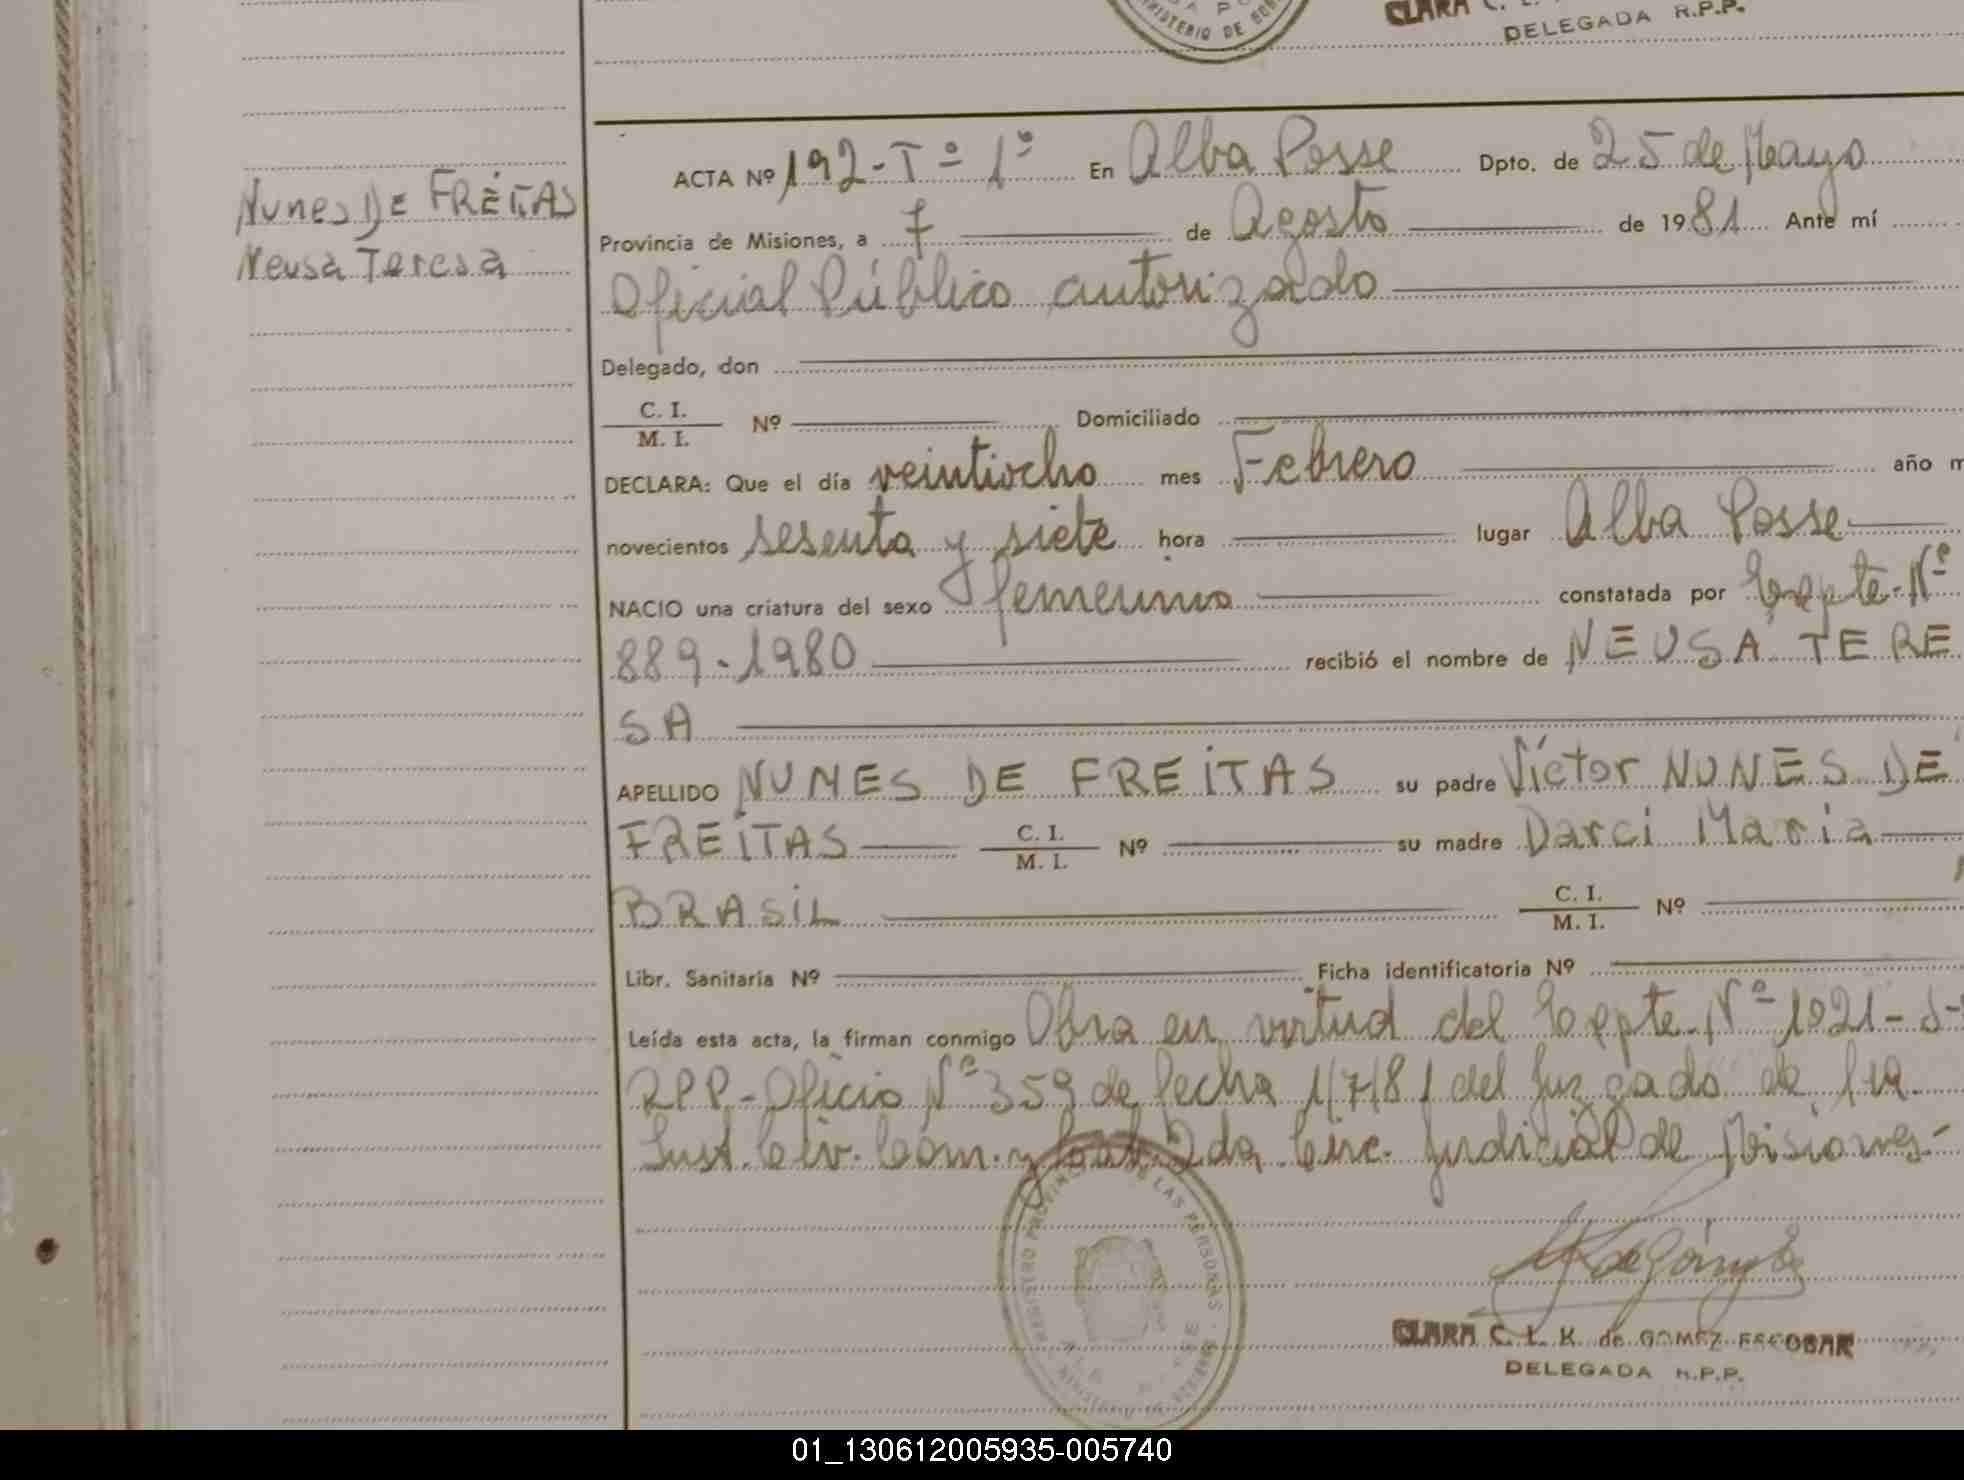 MINISTERIO DE GOB
CLARA C. L.
DELEGADA R.P.P.
Nunes DE FREITAS
Neusa Teresa
ACTA Nº 192-Tº 1º En Alba Posse Dpto. de 25 de Mayo
Provincia de Misiones, a 7 de Agosto de 1981 Ante mí
Oficial Público autorizado
Delegado, don
C. I.
M. I. Nº Domiciliado
DECLARA: Que el día veintiocho mes Febrero año m
novecientos sesenta y siete hora lugar Alba Posse
NACIO una criatura del sexo femenino constatada por Expte. Nº
889-1980 recibió el nombre de NEUSA TERE
SA
APELLIDO NUNES DE FREITAS su padre Víctor NUNES DE
FREITAS C. I. M. I. Nº su madre Darci Maria
BRASIL C. I. M. I. Nº
Libr. Sanitaria Nº Ficha identificatoria Nº
Leída esta acta, la firman conmigo Obra en virtud del Expte. Nº 1021-S-
RPP-Oficio Nº 359 de fecha 1/7/81 del Juzgado de 1ra.
Inst. Civ. Com. y Lab. 2da Circ. Judicial de Misiones-
REGISTRO PROVINCIAL DE LAS PERSONAS
CLARA C. L. K. de GOMEZ ESCOBAR
DELEGADA R.P.P.
01_130612005935-005740